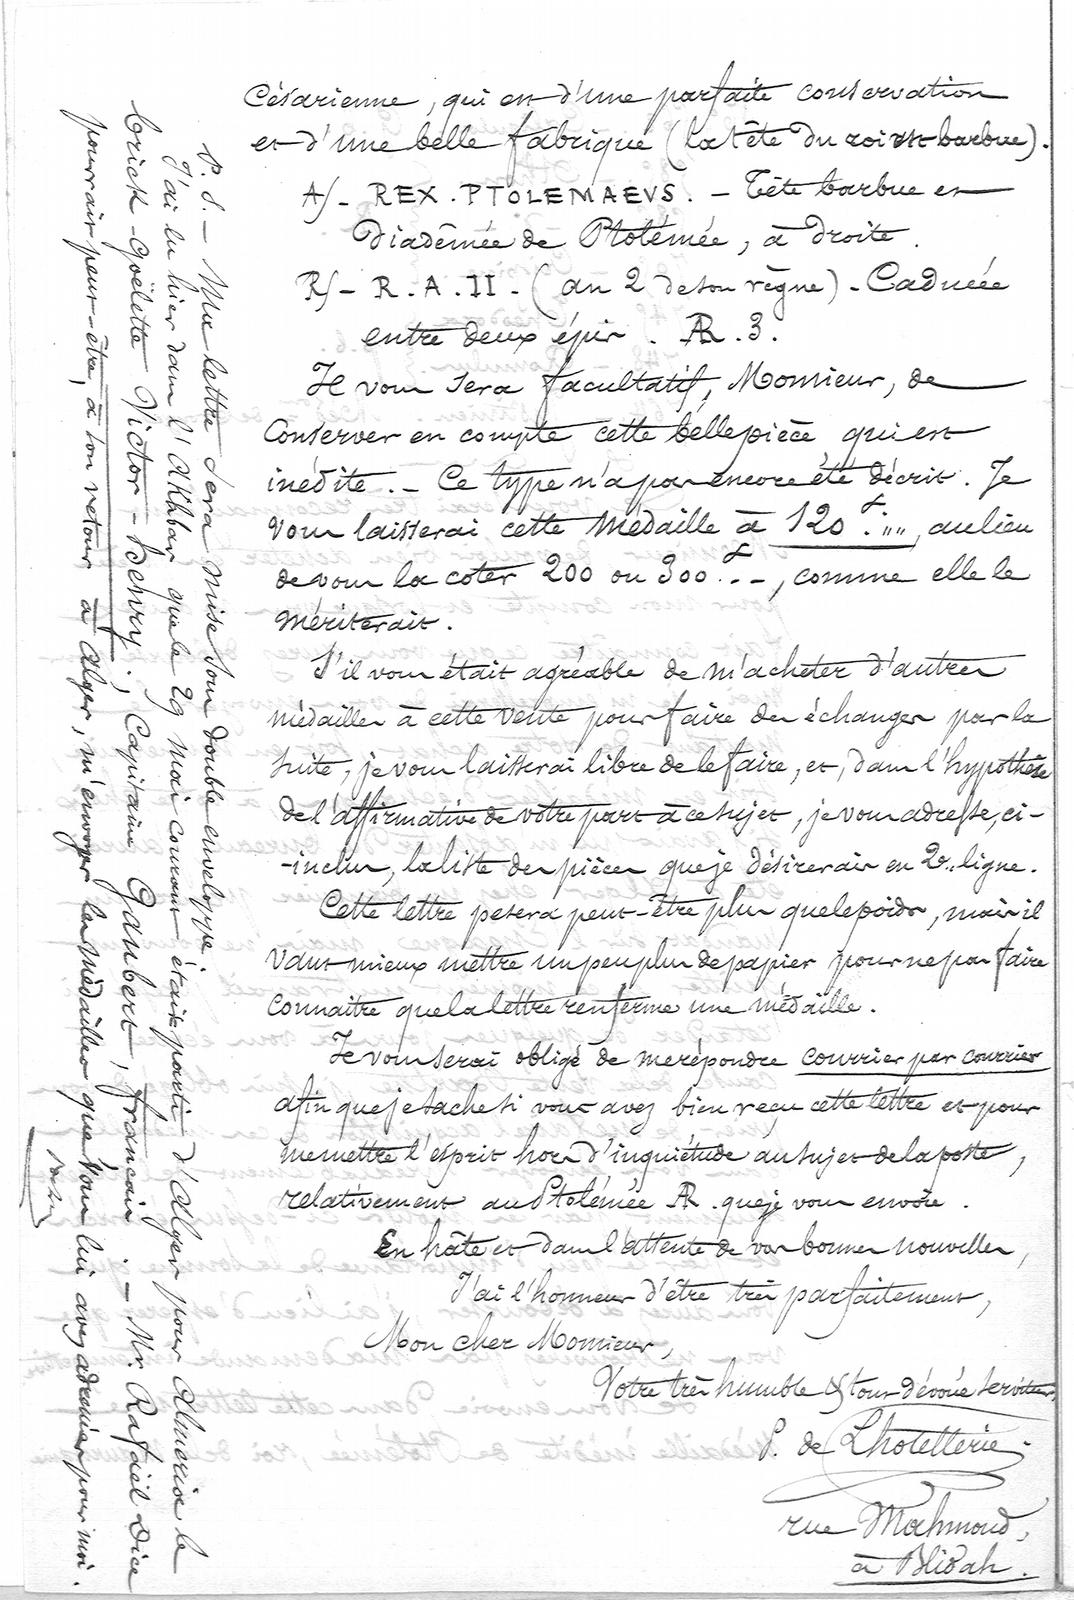 Césarienne, qui est d'une parfaite conservation
et d'une belle fabrique (la tête du roi est barbue).
A/- REX . PTOLEMAEVS . - Tête barbue et
Diadêmée de Ptolémée, à droite.
R/- R . A . II - (an 2 de son règne) - Caducée
entre deux épis . AR . 3 .
Il vous sera facultatif, Monsieur, de
Conserver en compte cette belle pièce, qui est
inédite . - Ce type n'a pas encore été décrit . Je
vous laisserai cette Médaille à 120 f. „„, au lieu
de vous la coter 200 ou 300 f. - -, comme elle le
mériterait .
S'il vous était agréable de m'acheter d'autres
médailles à cette vente pour faire des échanges par la
suite, je vous laisserai libre de le faire, et, dans l'hypothèse
de l'affirmative de votre part à ce sujet, je vous adresse, ci-
-inclus, la liste des pièces que je désirerais en 2e ligne .
Cette lettre pesera peut-être plus que le poids, mais il
vaut mieux mettre un peu plus de papier pour ne pas faire
connaitre que la lettre renferme une médaille .
Je vous serai obligé de me répondre courrier par courrier
afin que je sache si vous avez bien reçu cette lettre et pour
me mettre l'esprit hors d'inquiétude au sujet de la poste,
relativement au Ptolémée AR . que je vous envoie .
En hâte et dans l'attente de vos bonnes nouvelles,
J'ai l'honneur d'être très parfaitement,
Mon cher Monsieur,
Votre très humble & tout dévoué serviteur,
P. de Lhotellerie .
rue Mahmoud,
à Blidah .
P. S. - Ma lettre sera mise sous double enveloppe .
J'ai lu hier dans l'Akhbar que le 29 mai courant était parti d'Alger pour Alméria le
brick-goëlette Victor-Henry ; Capitaine Gaubert, français . - Mr. Rafaël Dice
pourrait peut-être, à son retour à Alger, m'envoyer les Médailles que vous lui avez adressées pour moi .